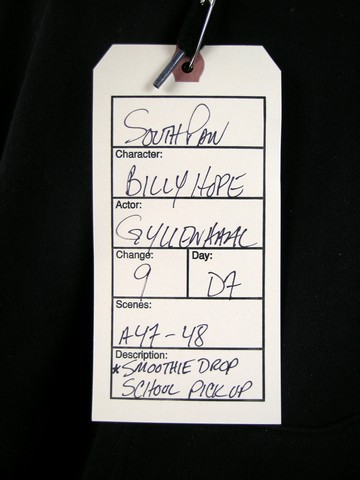 SOUTHPAW
Character:
BILLY HOPE
Actor:
GYLLENHAAL
Change: Day:
9 D7
Scenes:
A47-48
Description:
*SMOOTHIE DROP
SCHOOL PICK UP